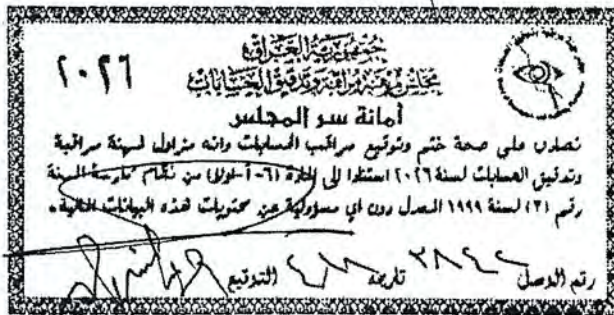 ٢٠٢٦
جمهورية العراق
مجلس مهنة مراقبة وتدقيق الحسابات
أمانة سر المجلس
نصادق على صحة ختم وتوقيع مراقب الحسابات وانه مزاول لمهنة مراقبة
وتدقيق الحسابات لسنة ٢٠٢٦ استنادا الى المادة (٦-أ-اولا) من نظام ممارسة المهنة
رقم (٣) لسنة ١٩٩٩ المعدل دون اي مسؤولية عن محتويات هذه البيانات المالية.
رقم الوصل تاريخه التوقيع